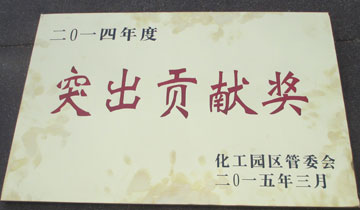 二〇一四年度
突出贡献奖
化工园区管委会
二〇一五年三月